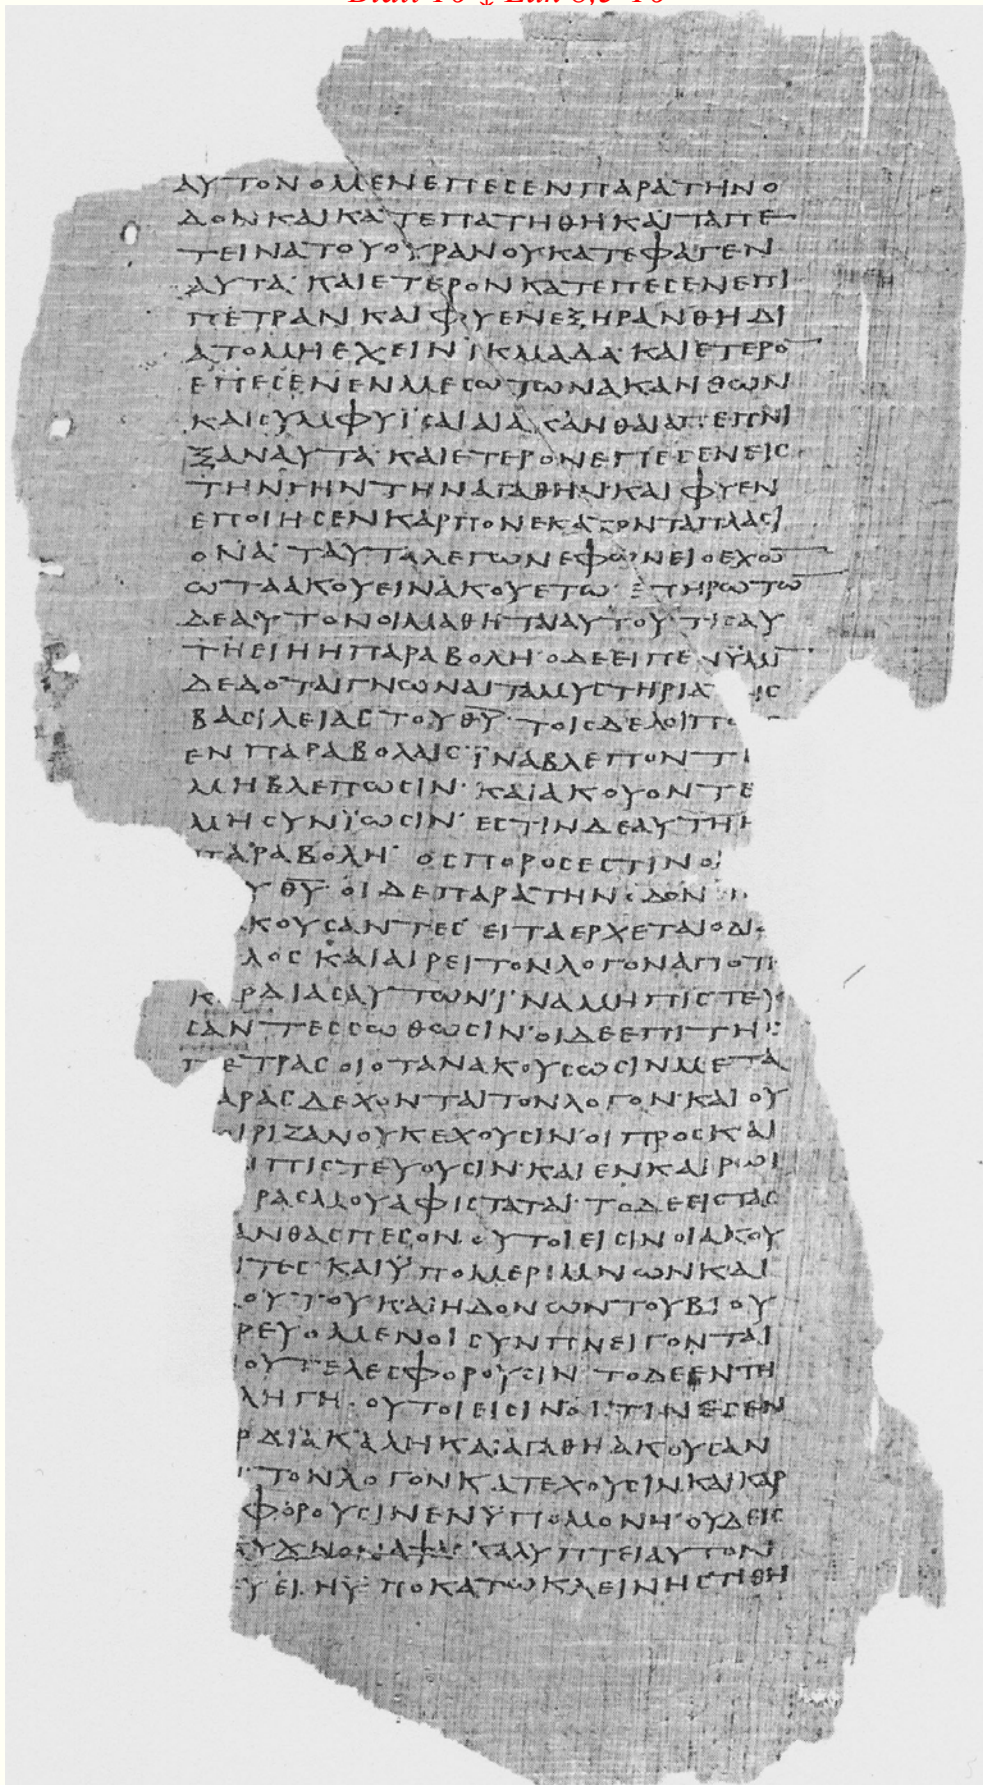 ΑΥΤΟΝ Ο ΜΕΝ ΕΠΕСΕΝ ΠΑΡΑ ΤΗΝ Ο
ΔΟΝ ΚΑΙ ΚΑΤΕΠΑΤΗΘΗ ΚΑΙ ΤΑ ΠΕ
ΤΕΙΝΑ ΤΟΥ ΟΥΡΑΝΟΥ ΚΑΤΕΦΑΓΕΝ
ΑΥΤΑ· ΚΑΙ ΕΤΕΡΟΝ ΚΑΤΕΠΕСΕΝ ΕΠΙ
ΠΕΤΡΑΝ ΚΑΙ ΦΥΕΝ ΕΞΗΡΑΝΘΗ ΔΙ
Α ΤΟ ΜΗ ΕΧΕΙΝ ΙΚΜΑΔΑ· ΚΑΙ ΕΤΕΡΟ̅
ΕΠΕСΕΝ ΕΝ ΜΕСΩ ΤΩΝ ΑΚΑΝΘΩΝ
ΚΑΙ СΥΜΦΥΙСΑΙ ΑΙ ΑΚΑΝΘΑΙ ΑΠΕΠΝΙ
ΞΑΝ ΑΥΤΑ· ΚΑΙ ΕΤΕΡΟΝ ΕΠΕСΕΝ ΕΙС
ΤΗΝ ΓΗΝ ΤΗΝ ΑΓΑΘΗΝ· ΚΑΙ ΦΥΕΝ
ΕΠΟΙΗСΕΝ ΚΑΡΠΟΝ ΕΚΑΤΟΝΤΑΠΛΑСΙ
ΟΝΑ· ΤΑΥΤΑ ΛΕΓΩΝ ΕΦΩΝΕΙ Ο ΕΧΩ̅
ΩΤΑ ΑΚΟΥΕΙΝ ΑΚΟΥΕΤΩ· ΕΠΗΡΩΤΩ̅
ΔΕ ΑΥΤΟΝ ΟΙ ΜΑΘΗΤΑΙ ΑΥΤΟΥ· ΤΙС ΑΥ
ΤΗ ΕΙΗ Η ΠΑΡΑΒΟΛΗ· Ο ΔΕ ΕΙΠΕΝ ΫΜΙ̅
ΔΕΔΟΤΑΙ ΓΝΩΝΑΙ ΤΑ ΜΥСΤΗΡΙΑ ΗС
ΒΑСΙΛΕΙΑС ΤΟΥ Θ̅Υ̅· ΤΟΙС ΔΕ ΛΟΙΠΟ
ΕΝ ΠΑΡΑΒΟΛΑΙС ΪΝΑ ΒΛΕΠΟΝΤ
ΜΗ ΒΛΕΠΩСΙΝ· ΚΑΙ ΑΚΟΥΟΝΤΕ
ΜΗ СΥΝΪΩСΙΝ· ΕСΤΙΝ ΔΕ ΑΥΤΗ Η
ΠΑΡΑΒΟΛΗ· Ο СΠΟΡΟС ΕСΤΙΝ Ο
Υ Θ̅Υ̅· ΟΙ ΔΕ ΠΑΡΑ ΤΗΝ ΟΔΟΝ
ΚΟΥСΑΝΤΕС ΕΙΤΑ ΕΡΧΕΤΑΙ Ο ΔΙ
ΛΟС ΚΑΙ ΑΙΡΕΙ ΤΟΝ ΛΟΓΟΝ ΑΠΟ Τ
Κ ΡΔΙΑС ΑΥΤΩΝ· ΪΝΑ ΜΗ ΠΙСΤΕΥ
СΑΝΤΕС СΩΘΩСΙΝ· ΟΙ ΔΕ ΕΠΙ ΤΗС
ΠΕΤΡΑС ΟΙ ΟΤΑΝ ΑΚΟΥСΩСΙΝ ΜΕΤΑ
ΑΡΑС ΔΕΧΟΝΤΑΙ ΤΟΝ ΛΟΓΟΝ· ΚΑΙ ΟΥ
Ι ΡΙΖΑΝ ΟΥΚ ΕΧΟΥСΙΝ· ΟΙ ΠΡΟС ΚΑΙ
Ν ΠΙСΤΕΥΟΥСΙΝ· ΚΑΙ ΕΝ ΚΑΙΡΩΙ
ΡΑСΜΟΥ ΑΦΙСΤΑΤΑΙ· ΤΟ ΔΕ ΕΙС ΤΑС
ΑΝΘΑС ΠΕСΟΝ· ΟΥΤΟΙ ΕΙСΙΝ ΟΙ ΑΚΟΥ
ΤΕС ΚΑΙ ΫΠΟ ΜΕΡΙΜΝΩΝ ΚΑΙ
ΟΥΤΟΥ ΚΑΙ ΗΔΟΝΩΝ ΤΟΥ ΒΙΟΥ
ΡΕΥΟΜΕΝΟΙ СΥΝΠΝΕΙΓΟΝΤΑΙ
ΟΥ ΤΕΛΕСΦΟΡΟΥСΙΝ· ΤΟ ΔΕ ΕΝ ΤΗ
ΛΗ ΓΗ· ΟΥΤΟΙ ΕΙСΙΝ ΟΙΤΙΝΕС ΕΝ
ΡΔΙΑ ΚΑΛΗ ΚΑΙ ΑΓΑΘΗ ΑΚΟΥСΑΝ
ΤΟΝ ΛΟΓΟΝ ΚΑΤΕΧΟΥСΙΝ ΚΑΙ ΚΑΡ
ΦΟΡΟΥСΙΝ ΕΝ ΫΠΟΜΟΝΗ· ΟΥΔΕΙС
ΛΥΧΝΟΝ ΑΨΑС ΚΑΛΥΠΤΕΙ ΑΥΤΟΝ
ΥΕΙ· Η ΫΠΟΚΑΤΩ ΚΛΕΙΝΗС ΤΙΘΗ